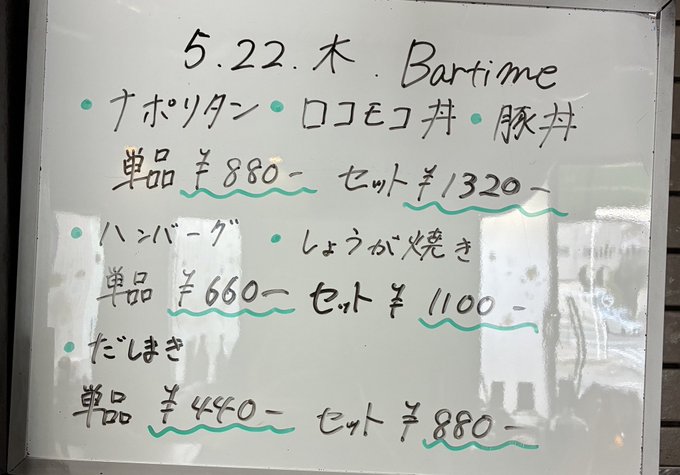 5.22.木. Bartime
・ナポリタン・ロコモコ丼・豚丼
単品 ¥880- セット ¥1320-
・ハンバーグ ・しょうが焼き
単品 ¥660- セット ¥1100-
・だしまき
単品 ¥440- セット ¥880-